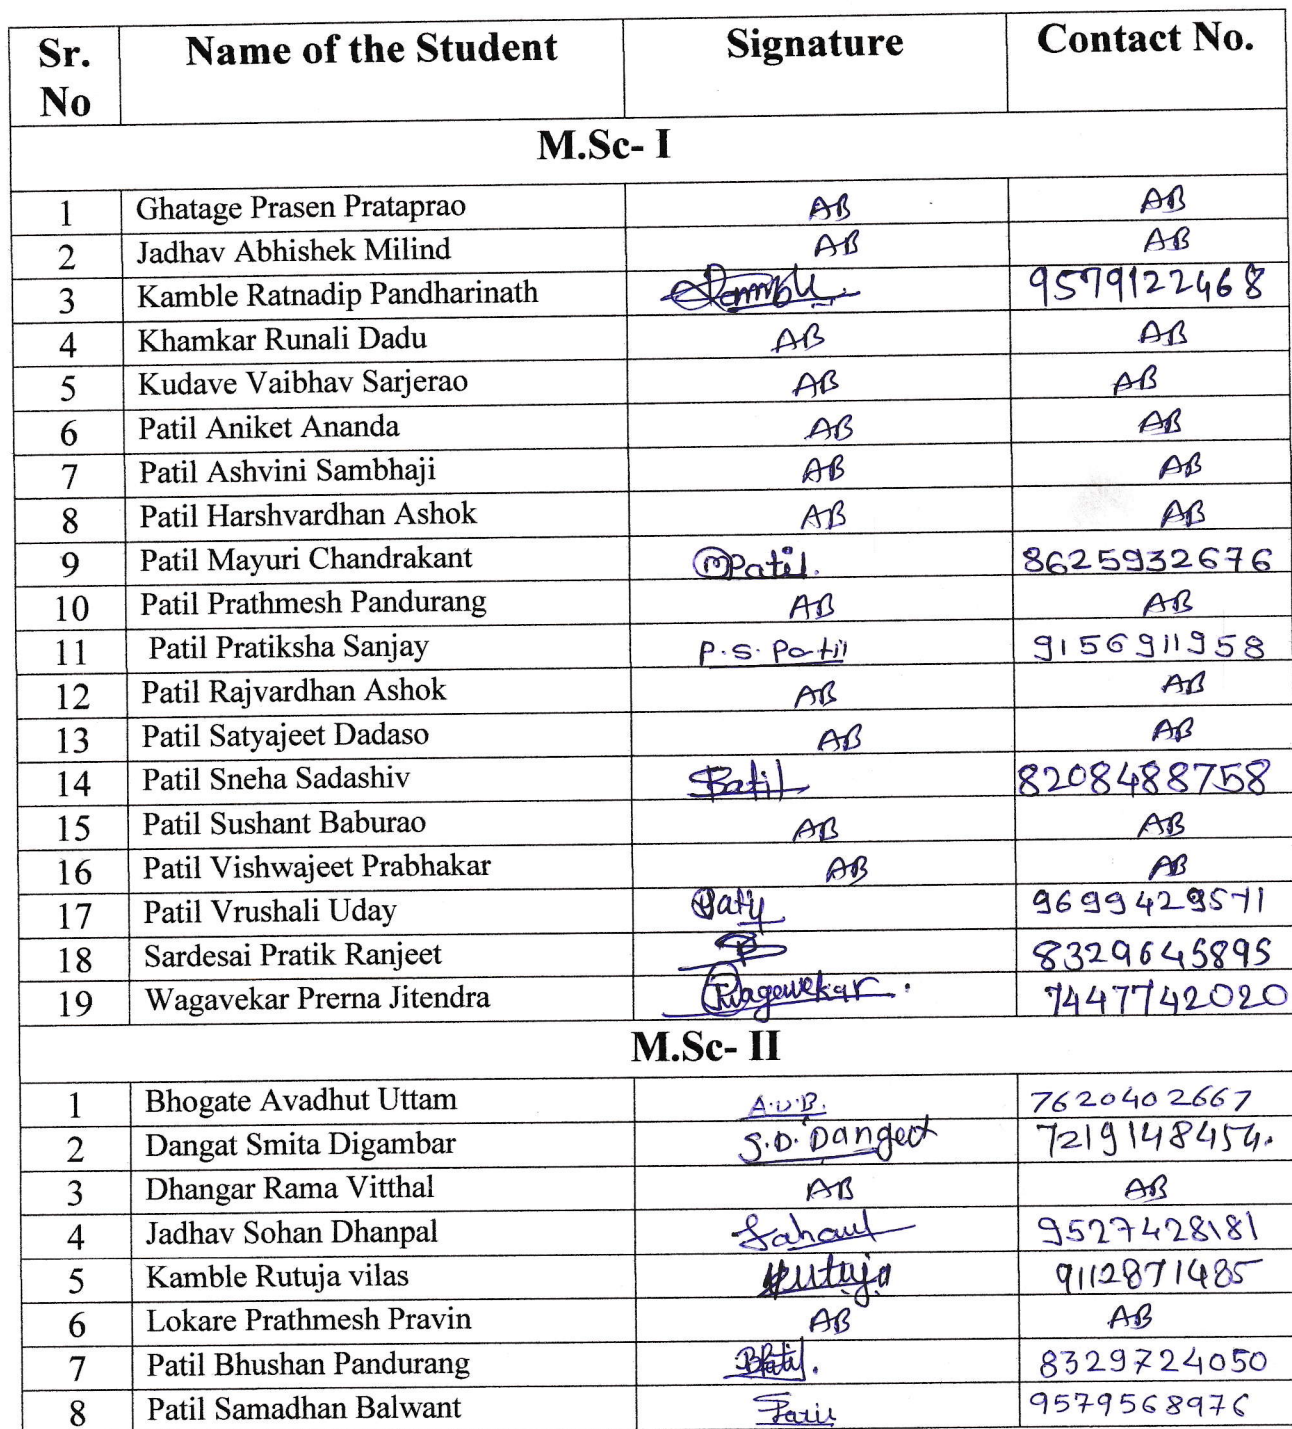 Sr. No Name of the Student Signature Contact No.
M.Sc- I
1 Ghatage Prasen Prataprao AB AB
2 Jadhav Abhishek Milind AB AB
3 Kamble Ratnadip Pandharinath 9579122468
4 Khamkar Runali Dadu AB AB
5 Kudave Vaibhav Sarjerao AB AB
6 Patil Aniket Ananda AB AB
7 Patil Ashvini Sambhaji AB AB
8 Patil Harshvardhan Ashok AB AB
9 Patil Mayuri Chandrakant MPatil. 8625932676
10 Patil Prathmesh Pandurang AB AB
11 Patil Pratiksha Sanjay P.S. Patil 9156911958
12 Patil Rajvardhan Ashok AB AB
13 Patil Satyajeet Dadaso AB AB
14 Patil Sneha Sadashiv SPatil 8208488758
15 Patil Sushant Baburao AB AB
16 Patil Vishwajeet Prabhakar AB AB
17 Patil Vrushali Uday 9699429571
18 Sardesai Pratik Ranjeet 8329645895
19 Wagavekar Prerna Jitendra PWagewekar. 7447742020
M.Sc- II
1 Bhogate Avadhut Uttam A.U.B. 7620402667
2 Dangat Smita Digambar S.D. Dangat 7219148454.
3 Dhangar Rama Vitthal AB AB
4 Jadhav Sohan Dhanpal 9527428181
5 Kamble Rutuja vilas Rutuja 9112871485
6 Lokare Prathmesh Pravin AB AB
7 Patil Bhushan Pandurang BPatil. 8329724050
8 Patil Samadhan Balwant 9579568976